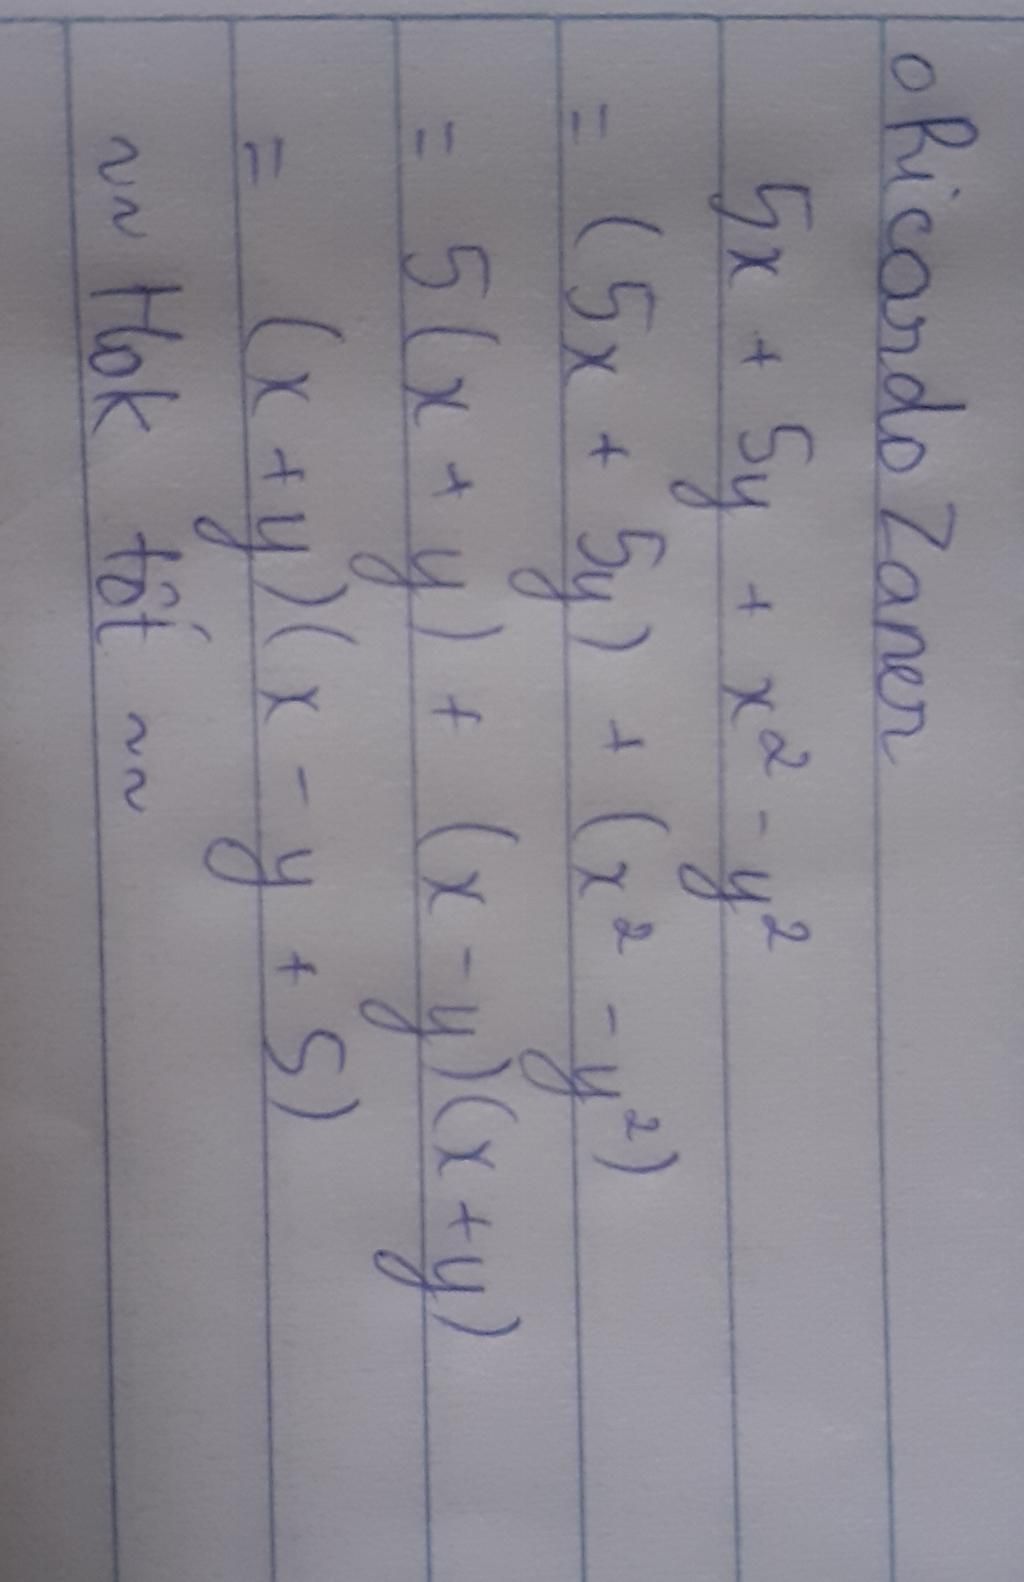 o Ricardo Zaner
5x + 5y + x² - y²
= (5x + 5y) + (x² - y²)
= 5(x + y) + (x - y)(x + y)
= (x + y)(x - y + 5)
~~ Hok tốt ~~